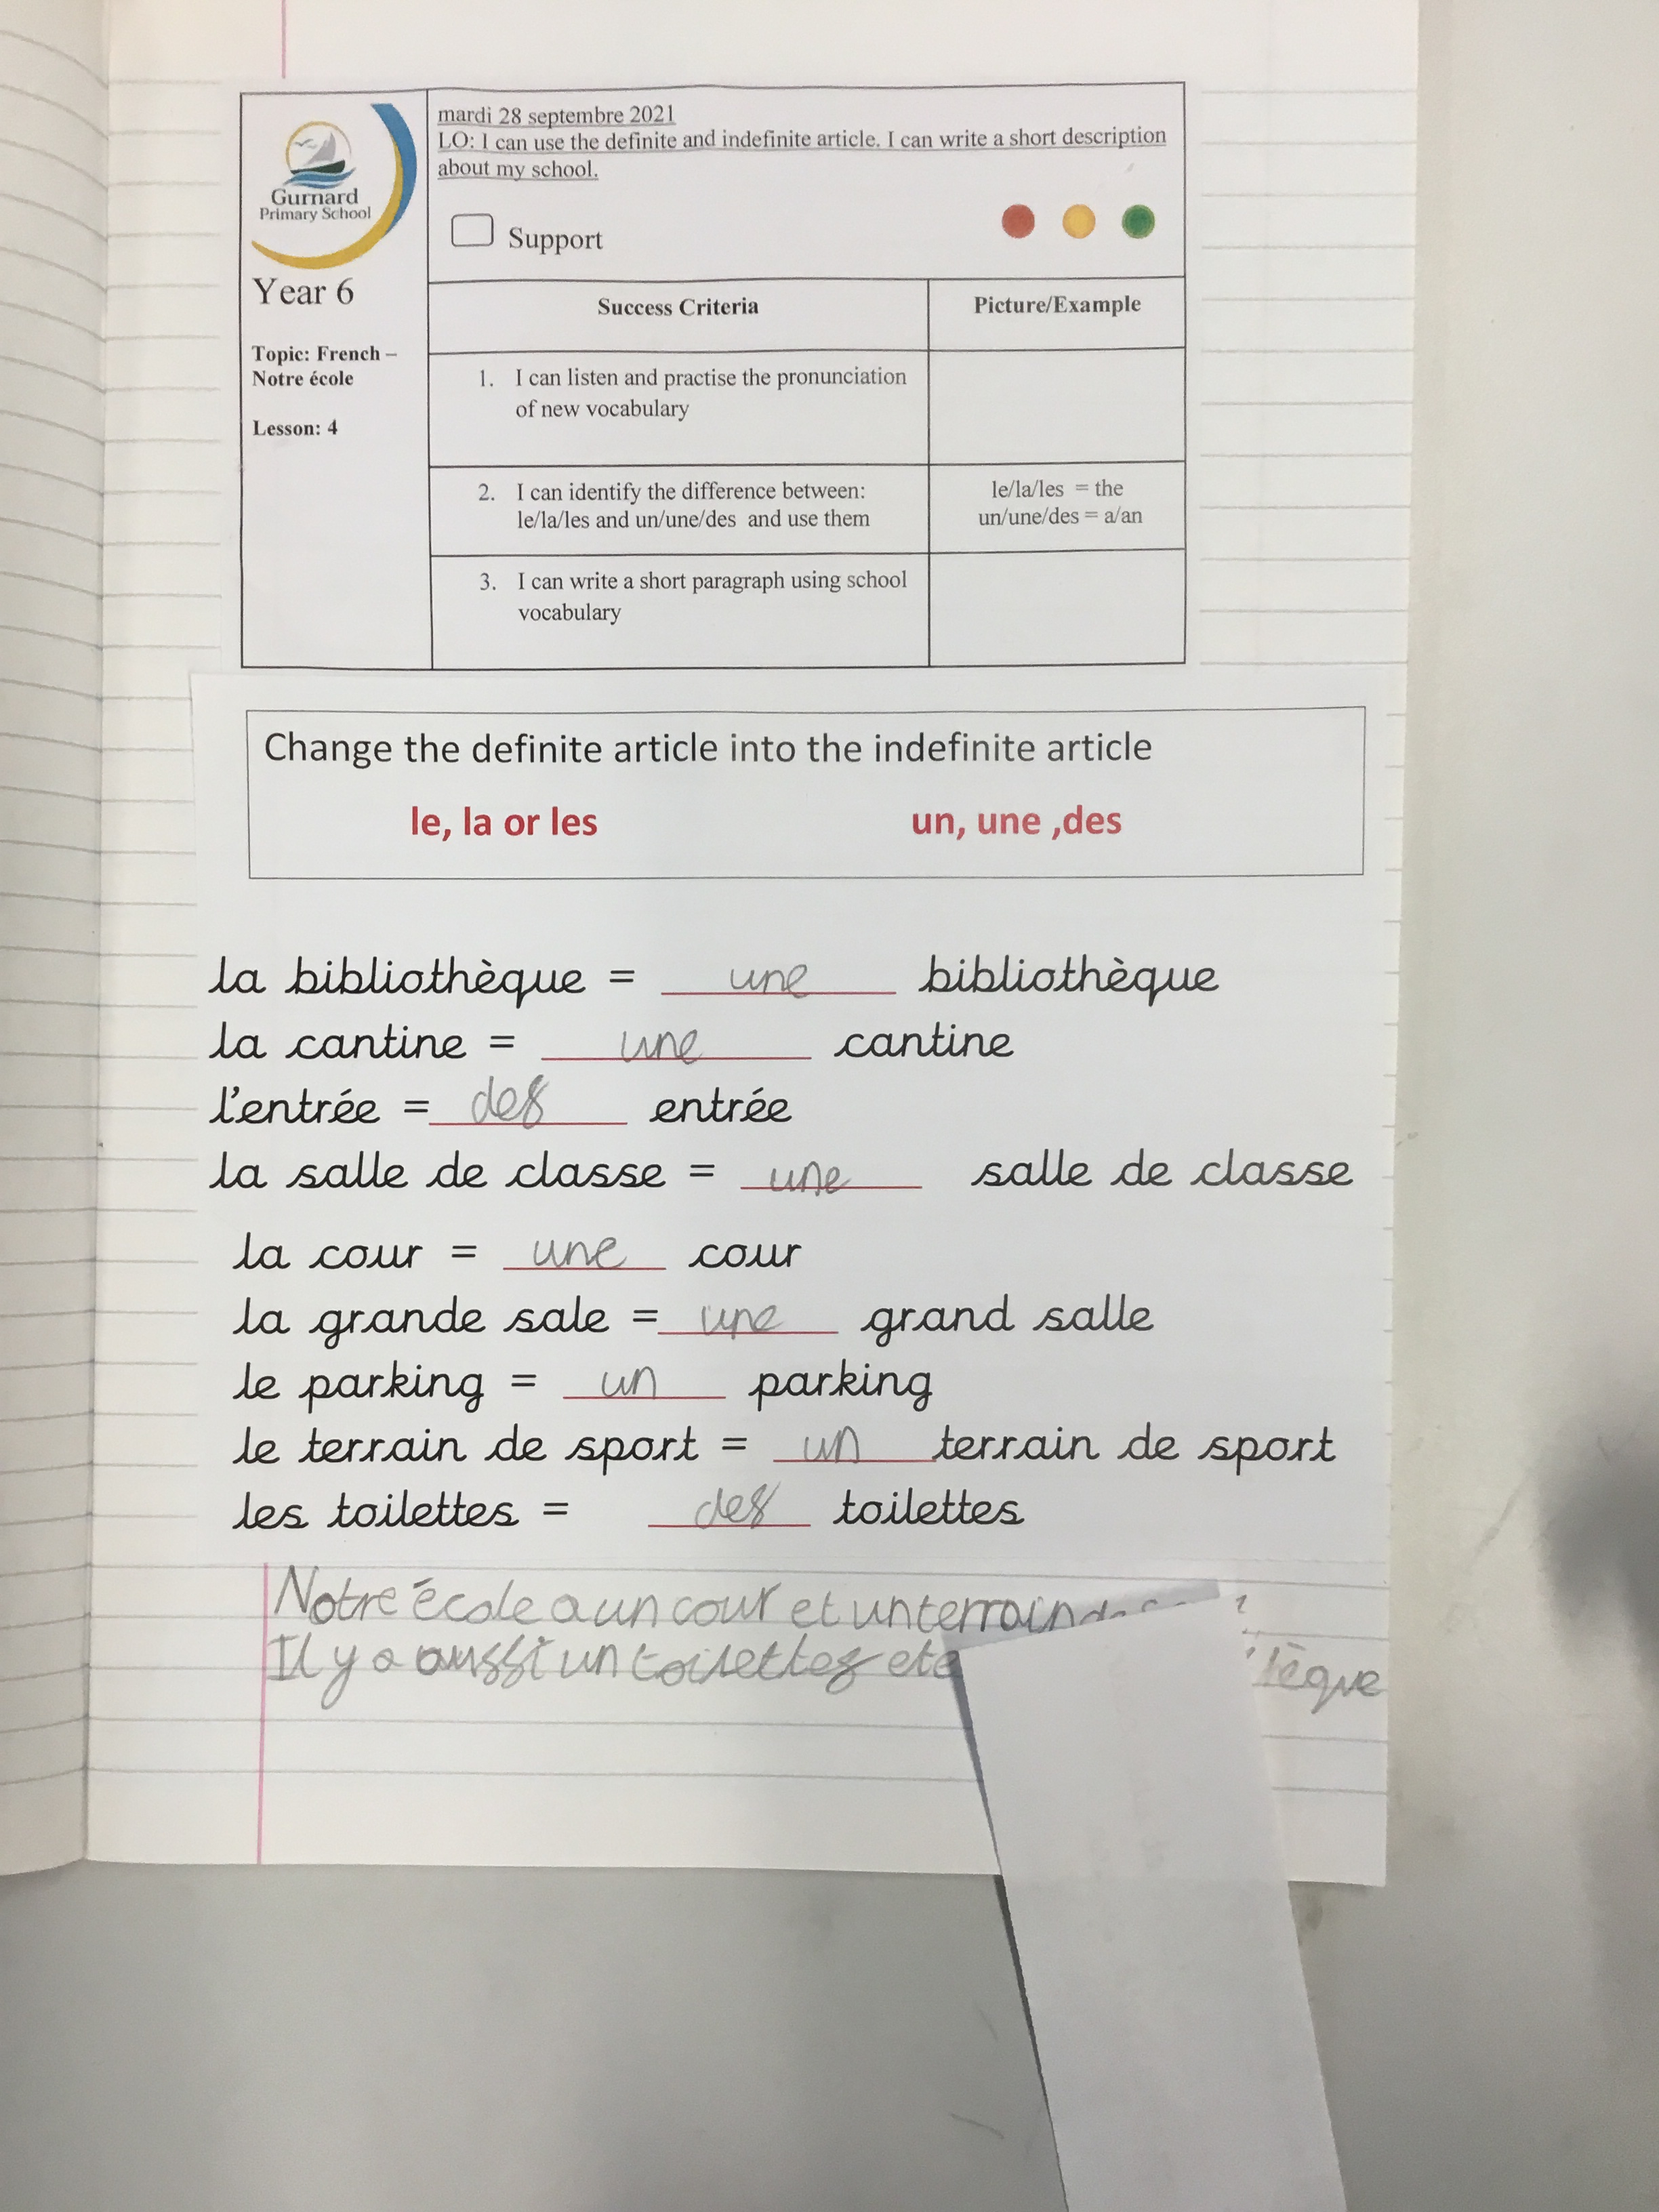 mardi 28 septembre 2021
LO: I can use the definite and indefinite article. I can write a short description
about my school.
Gurnard
Primary School
Support
Year 6
Topic: French –
Notre école
Lesson: 4
Success Criteria
Picture/Example
1. I can listen and practise the pronunciation
of new vocabulary
2. I can identify the difference between:
le/la/les and un/une/des and use them
le/la/les = the
un/une/des = a/an
3. I can write a short paragraph using school
vocabulary
Change the definite article into the indefinite article
le, la or les un, une ,des
la bibliothèque = une bibliothèque
la cantine = une cantine
l'entrée = des entrée
la salle de classe = une salle de classe
la cour = une cour
la grande sale = une grand salle
le parking = un parking
le terrain de sport = un terrain de sport
les toilettes = des toilettes
Notre école a un cour et un terrain
Il y a aussi un toilettes et